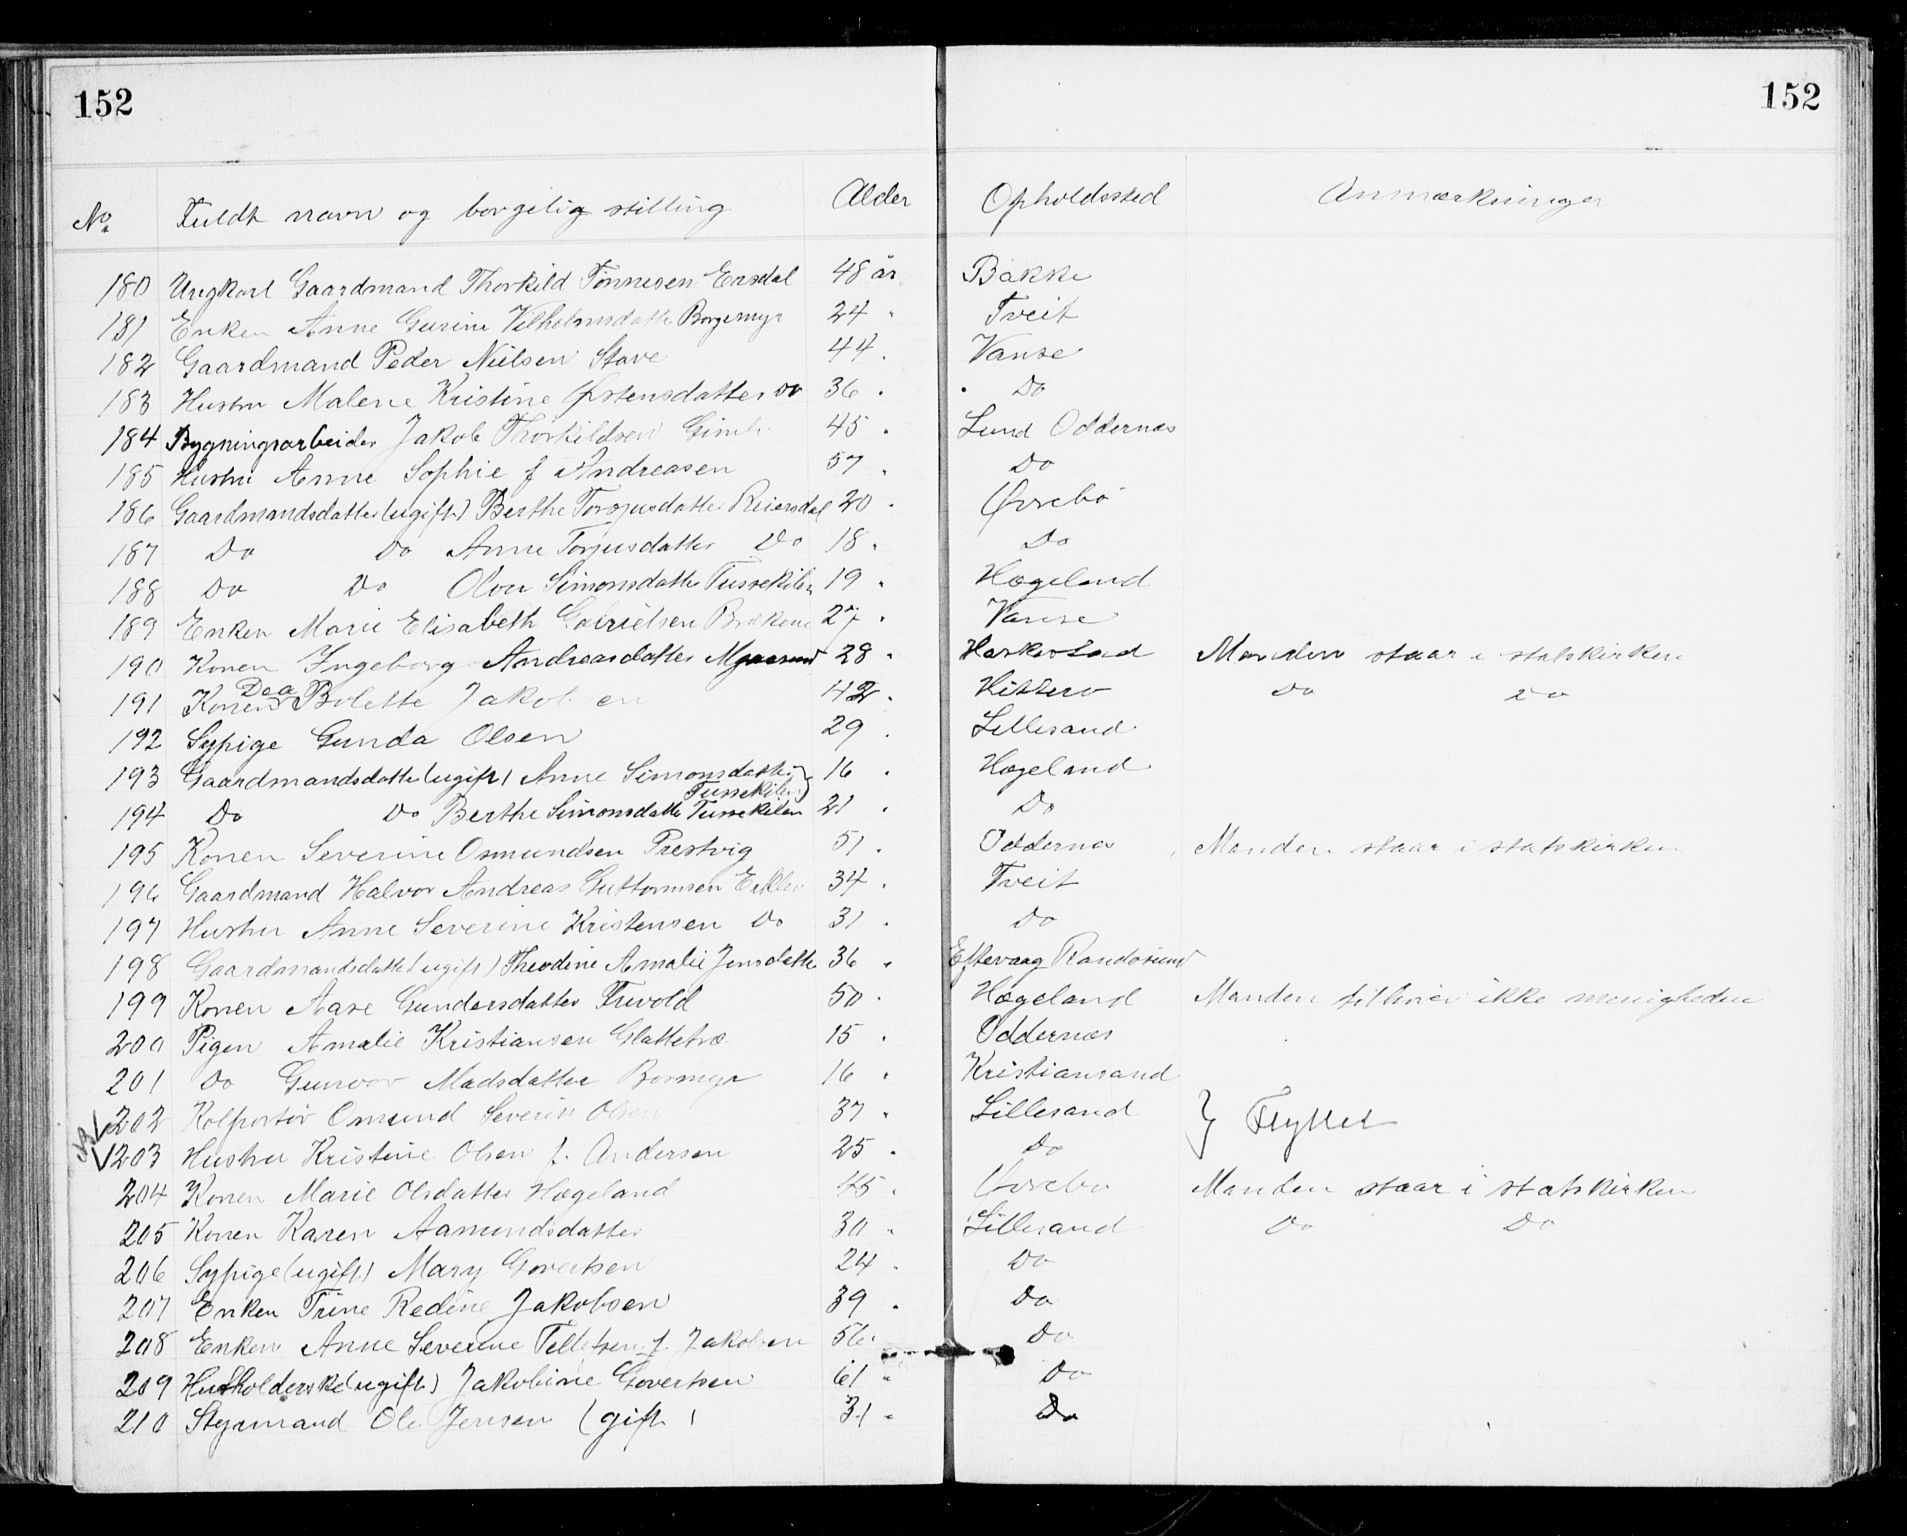 152 152
No. Fuldt navn og borgelig stilling Alder Opholdssted Anmærkninger
180 Ungkarl Gaardmand Thorkild Tønnesen Ersdal 48 år Bakke
181 Enken Anne Gurine Vilhelmsdatter Borgemyr 24 " Tveit
182 Gaardmand Peder Nielsen Stave 44 . Vanse
183 Hustru Malene Kristine Østensdatter Do 36 . Do
184 Bygningsarbeider Jakob Thorkildsen Gimle 45 . Lund Oddernæs
185 Hustru Anne Sophie f Andreasen 57 . Do
186 Gaardmandsdatter (ugift) Berthe Torjusdatter Reiersdal 20 . Øvrebø
187 Do Do Anne Torjusdatter Do 18 . Do
188 Do Do Olva Simonsdatter Tussekilen 19 " Hægeland
189 Enken Marie Elisabeth Gabrielsen 27 . Vanse
190 Konen Ingeborg Andreasdatter 28 " Manden staar i statskirken
191 Konen Dea Bolette Jakobsen 42 . Hitterø Do Do
192 Sypige Gunda Olsen 29 . Lillesand
193 Gaardmandsdatter (ugift) Anne Simonsdatter 16 . Hægeland
Tussekilen)
194 Do Do Berthe Simonsdatter Tussekilen 21 . Do
195 Konen Severine Osmundsen Prestvig 51 . Oddernæs Manden staar i statskirken
196 Gaardmand Halvor Andreas Guttormsen Erklev 34 . Tveit
197 Hustru Anne Severine Kristensen Do 31 . Do
198 Gaardmandsdatter (ugift) Theodine Amalie Jensdatter 36 . Eftevaag Randøsund
199 Konen Aase Gundersdatter Frivold 50 . Hægeland Manden tilhører ikke menigheden
200 Pigen Amalie Kristiansen Glattetræ 15 . Oddernæs
201 Do Gunvor Madsdatter 16 . Kristiansand
202 Kolportør Omund Severin Olsen 37 " Lillesand } Flyttet
203 Hustru Kristine Olsen f. Andersen 25 . Do
204 Konen Marie Olsdatter Hægeland 45 . Øvrebø Manden staar i statskirken
205 Konen Karen Aamundsdatter 30 " Lillesand Do Do
206 Sypige (ugift) Mary Govertsen 24 . Do
207 Enken Trine Redine Jakobsen 39 . Do
208 Enken Anne Severine Tellefsen f. Jakobsen 56 . Do
209 Husholderske (ugift) Jakobine Govertsen 61 " Do
210 Styrmand Ole Jensen (gift) 31 " Do